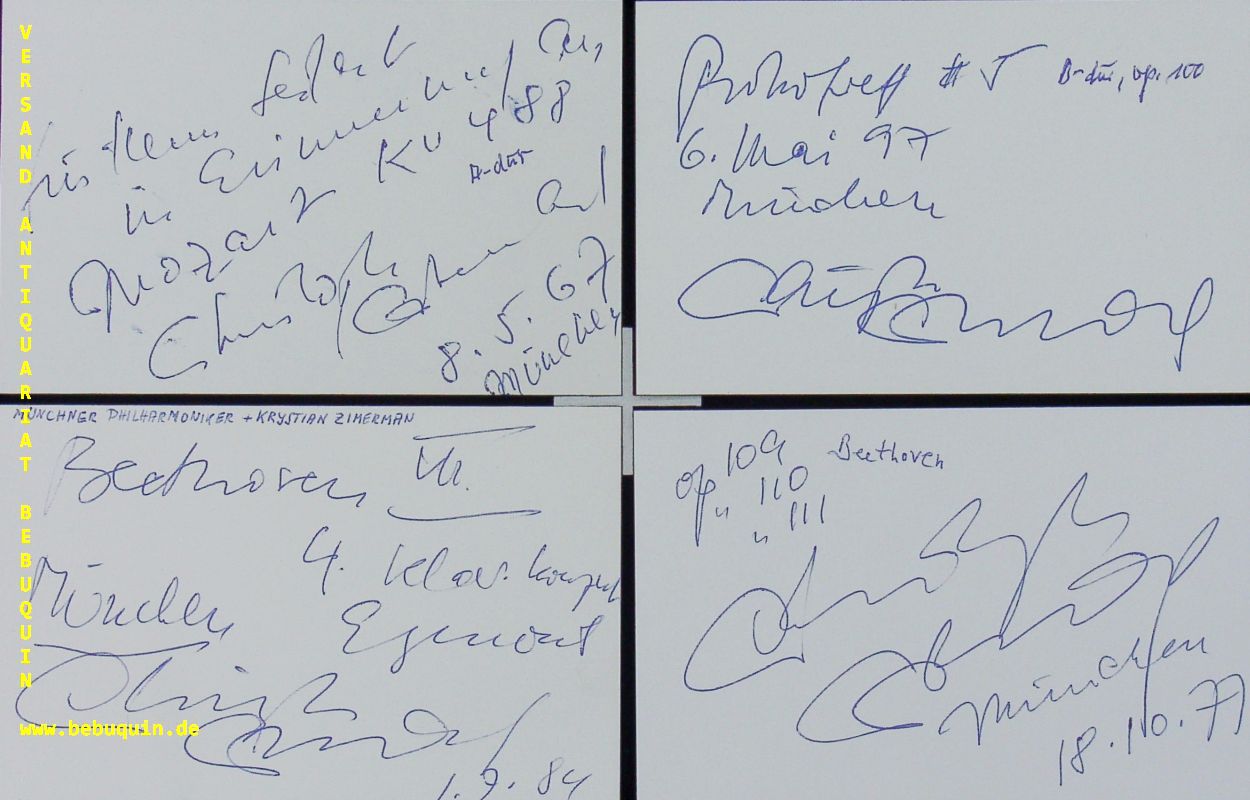 mit Dank
in Erinnerung an
Mozart KV 488
A-dur
Christoph Eschenbach
8. 5. 67
München
Prokofieff # 5 B-dur, op. 100
6. Mai 97
München
MÜNCHNER PHILHARMONIKER + KRYSTIAN ZIMERMAN
Beethoven VII.
4. Klav. Konzert
München
Egmont
1. 9. 84
op 109 Beethoven
" 110
" 111
München
18.10.77
VERSAND ANTIQUARIAT BEBUQUIN
www.bebuquin.de